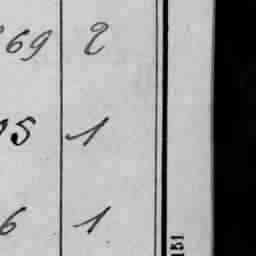 69 2
5 1
6 1
151